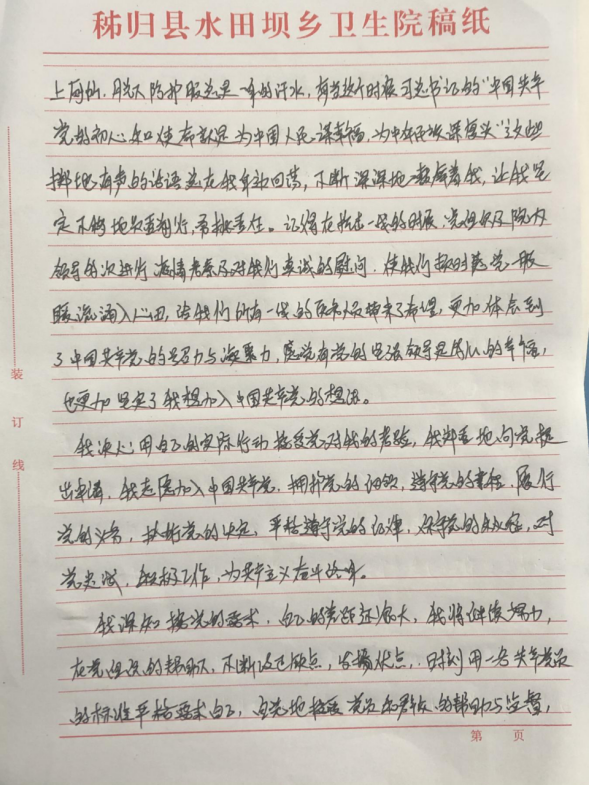 秭归县水田坝乡卫生院稿纸
上前线.脱下防护服总是一身的汗水,有时候习总书记的“中国共产
党的初心和使命就是为中国人民谋幸福,为中华民族谋复兴”这些
掷地有声的话语总在我耳边回荡,不断深深地激励着我,让我坚
定不移地勇往前行,勇挑重任。记得在抗击一线的时候,党组织及院内
领导多次进行疫情关怀及对我们真诚的慰问.使我们顿时感觉一股
暖流涌入心田,给我们所有一线的医务人员带来了希望,更加体会到
了中国共产党的号召力与凝聚力,感觉有党的坚强领导是
也更加坚定了我想加入中国共产党的想法。
我决心用自己的实际行动接受党对我的考验,我郑重地向党提
出申请,我志愿加入中国共产党,拥护党的纲领,遵守党的章程,履行
党的义务,执行党的决定,严格遵守党的纪律,保守党的秘密,对
党忠诚,积极工作,为共产主义奋斗终身。
我深知按党的要求,自己的差距还很大,我将继续努力,
在党组织的帮助下,不断改正缺点,发扬优点,时刻用一名共产党员
的标准严格要求自己,自觉地接受党员和群众的帮助与监督,
装
订
线
第 页